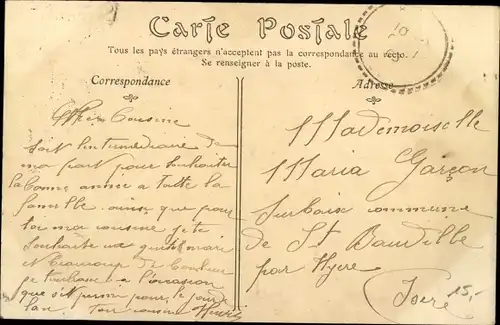 Carte Postale
Tous les pays étrangers n'acceptent pas la correspondance au recto.
Se renseigner à la poste.
Correspondance
Adresse
Chère Cousine
soit l'intermédiaire de
ma part pour souhaiter
la bonne année a toute la
famille ainsi que pour
toi ma cousine je te
souhaite un gentil mari
et beaucoup de bonheur
je l'occasion
que pour le jour de
l'an. ton cousin Henri
Mademoiselle
Maria Garçon
commune
de St Baudille
par Hyere
Isere
15,-